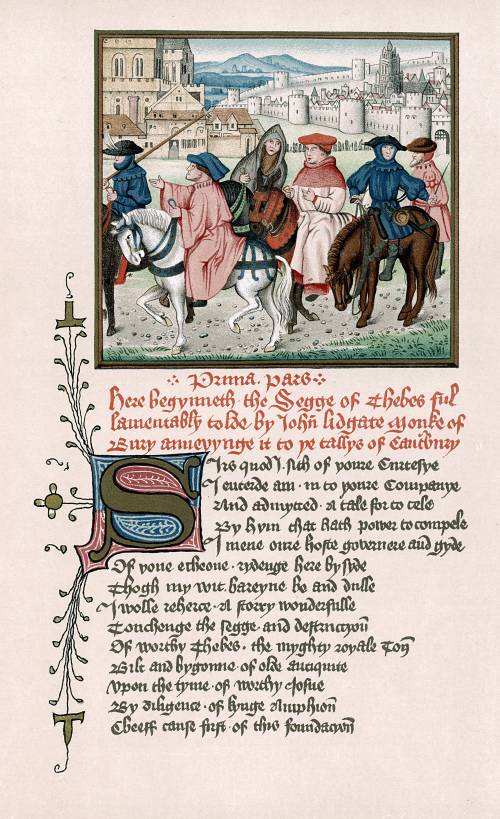 Prima . pars
Here begynneth the Segge of Thebes ful
lamentably tolde by John lidgate Monke of
Bury annevynge it to ye tallys of Cantbury
Sirs quod I . sich of youre Curtesye
I entrede am . in to youre Companye
And admytted . a tale for to tele
By hym that hath power to compele
I mene oure hoste governere and gyde
Of yone echeone . rydenge here by syde
Thogh my wit . bareyne be and dulle
I wolle reherce . a storry wonderfulle
Touchenge the segge . and destruccyon
Of worthy Thebes . the myghty royale Ton
Bilt and bygonne . of olde antiquite
Vpon the tyme . of worthy Josue
By diligence . of kynge Amphion
Cheeff cause first . of this foundacyon